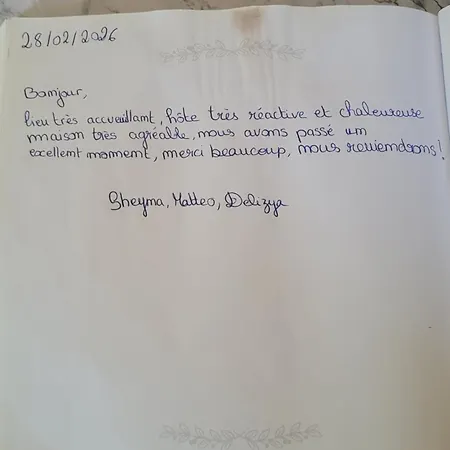 28/02/2026
Bonjour,
lieu très accueillant, hôte très réactive et chaleureuse
maison très agréable, nous avons passé un
excellent moment, merci beaucoup, nous reviendrons!
Sheyma, Matteo, Delizya